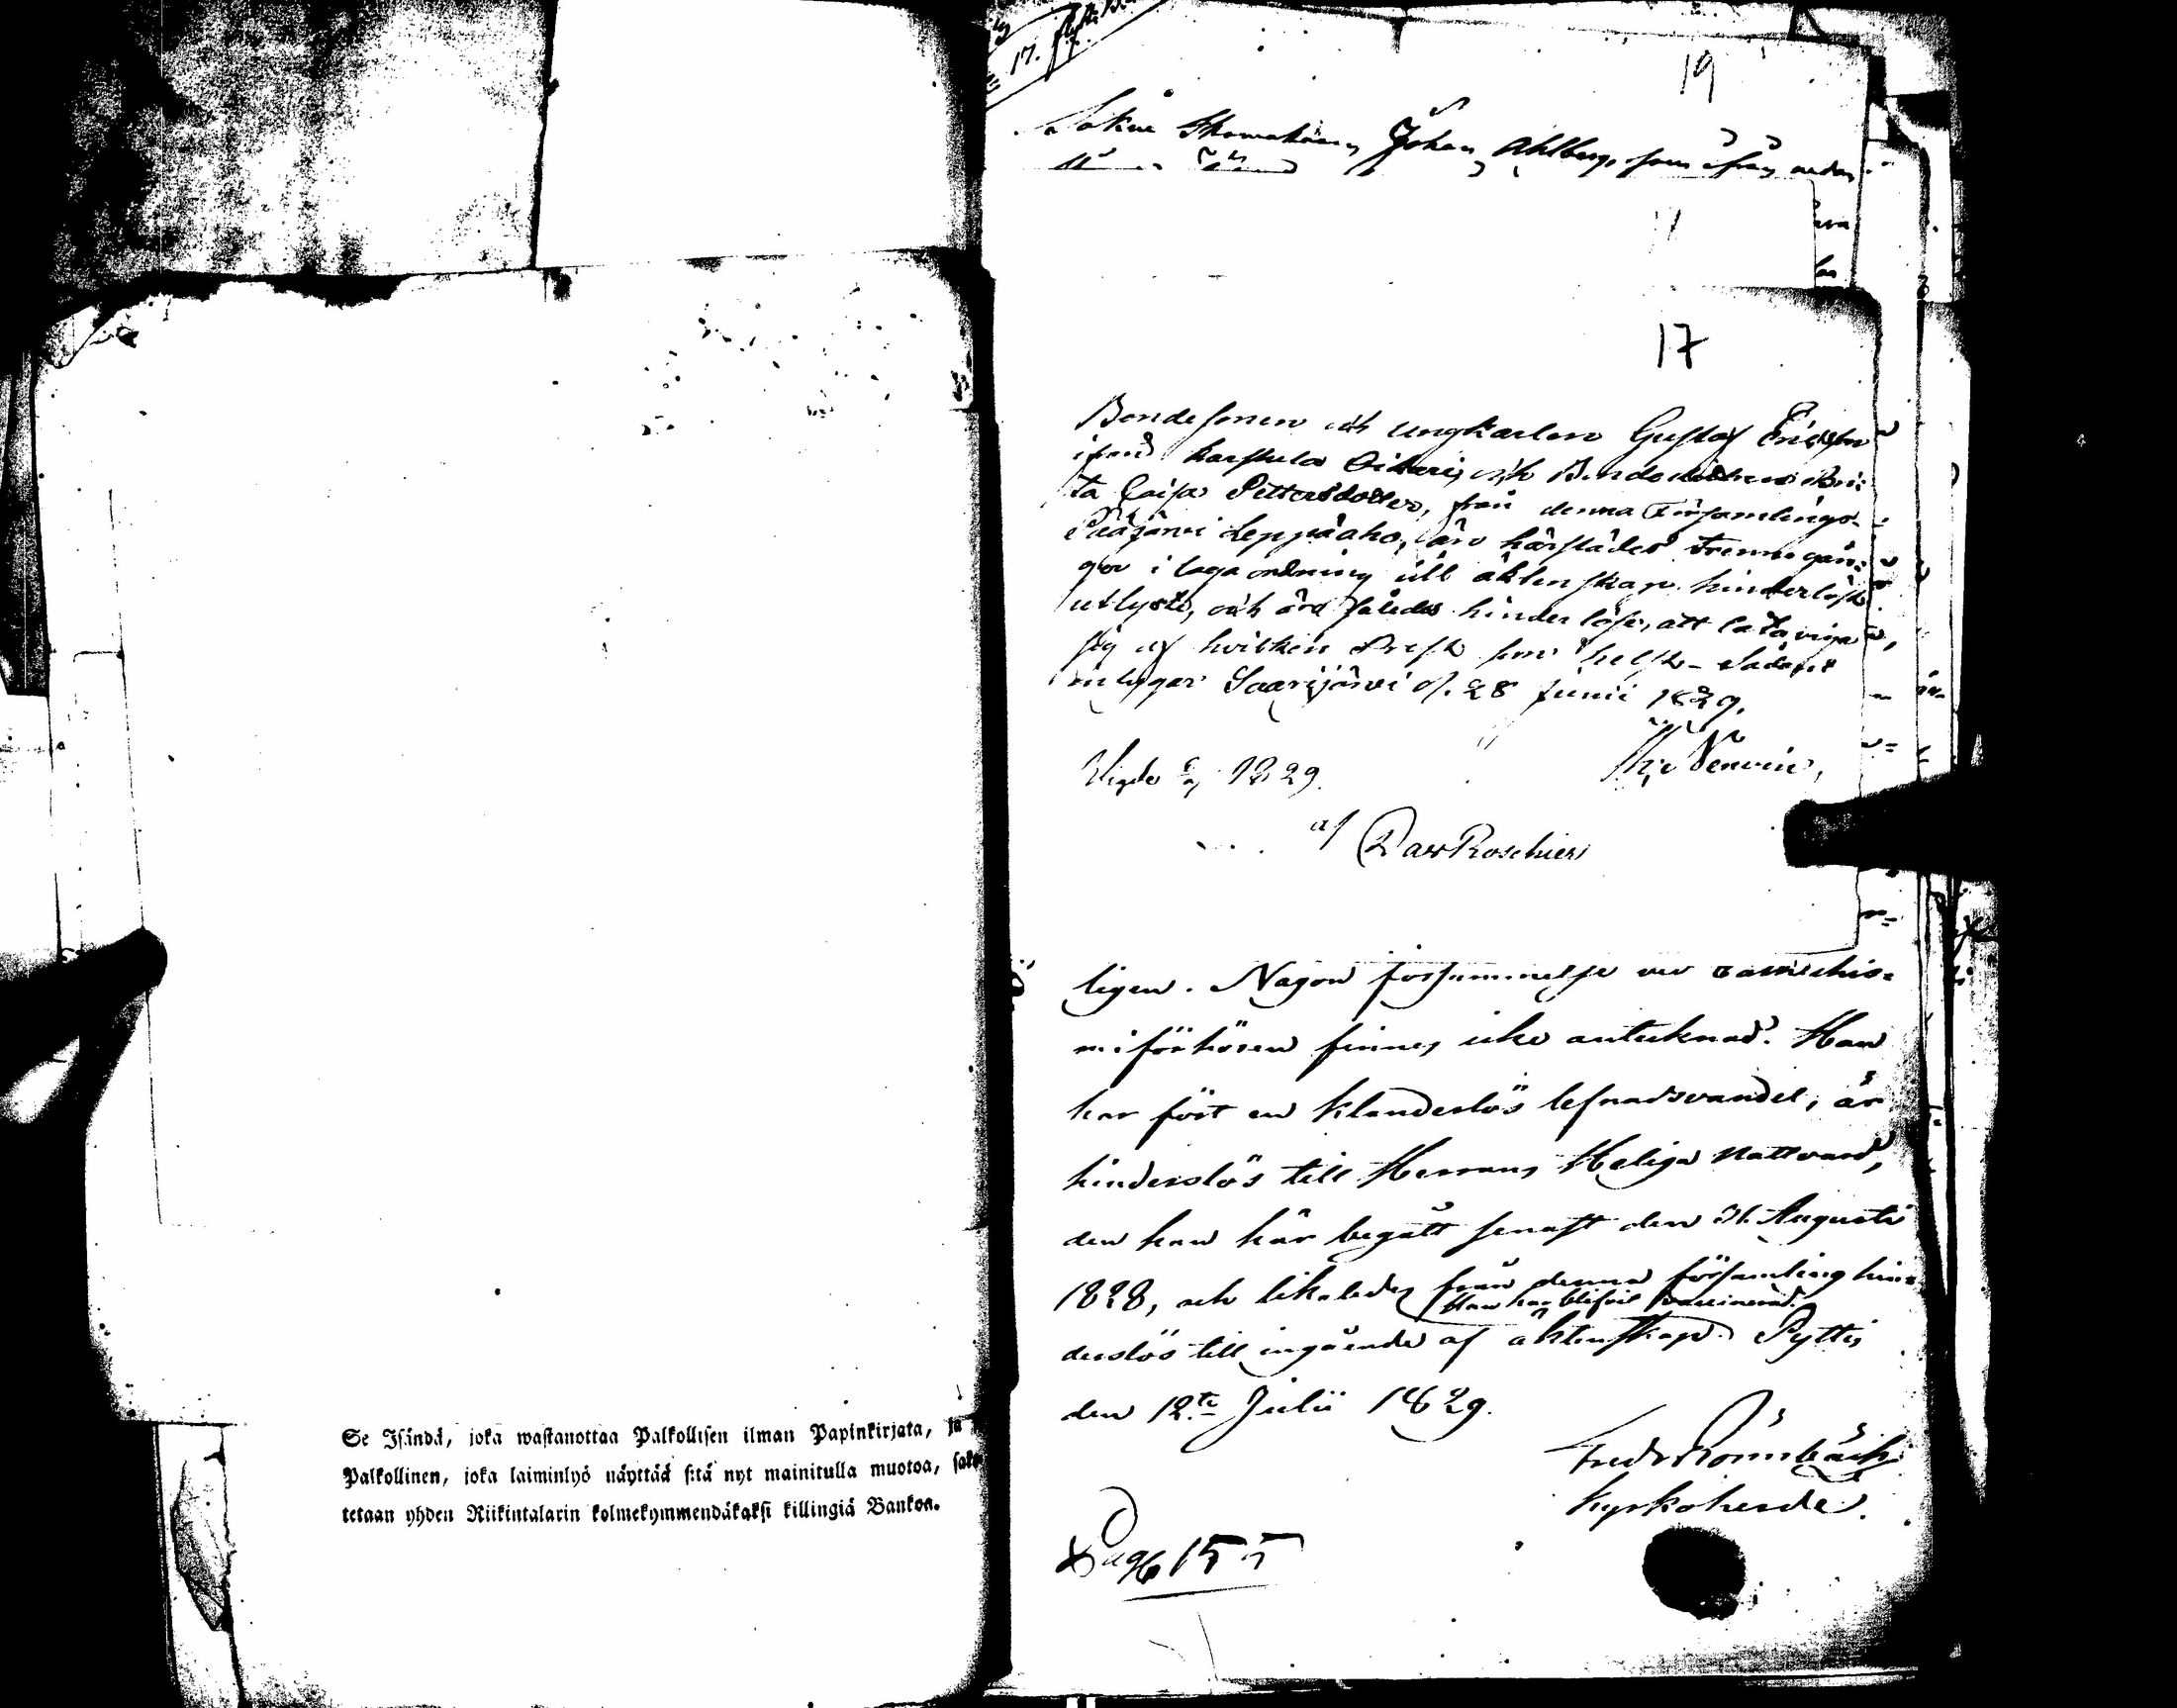 Se Isändä, joka wastanottaa Palkollisen ilman Papinkirjata, ja
Palkollinen, joka laiminlyö näyttää sitä nyt mainitulla muotoa, sako
tetaan yhden Riikintalarin kolmekymmendäkaksi killingiä Bankoa.
17.
19
Johan Ahlberg, som ifrån
17
Bondesonen och ungkarlen Gustaf Ericsson
ifrån Karstula Oikari, och Bondedottren Bri:
ta Caisa Pettersdotter, från denna Församlings
Pääjärvi Leppäaho, äro härstädes trenne gån:
gor i laga ordning till äktenskap hinderlöst
utlyste, och äro således hinderlöse, att låta viga
sig af hvilken Prest som helst. Sådant
intygar Saarijärvi d. 28 Junii 1829.
Vigde 1829.
af Roschier
ligen. Någon försummelse vid catechis=
miförhören finnes icke antecknad. Han
har fört en klanderlös lefnadsvandel, är
hinderslös till Herrans Heliga Nattvard,
den han här begått senast den 31 Augusti
1828, och likaledes från denna församling hin=
Han har blifvit vaccinerad.
derslös till ingående af äktenskap. Pyttis
den 12te Julii 1829.
Fredr Rönnbäck
Kyrkoherde.
Pag 155